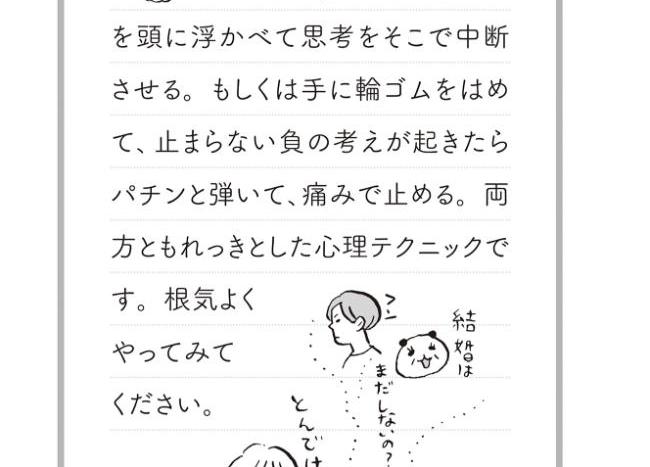 を頭に浮かべて思考をそこで中断
させる。もしくは手に輪ゴムをはめ
て、止まらない負の考えが起きたら
パチンと弾いて、痛みで止める。両
方ともれっきとした心理テクニックで
す。根気よく
やってみて
ください。
結婚は
まだしないの?
とんでけ